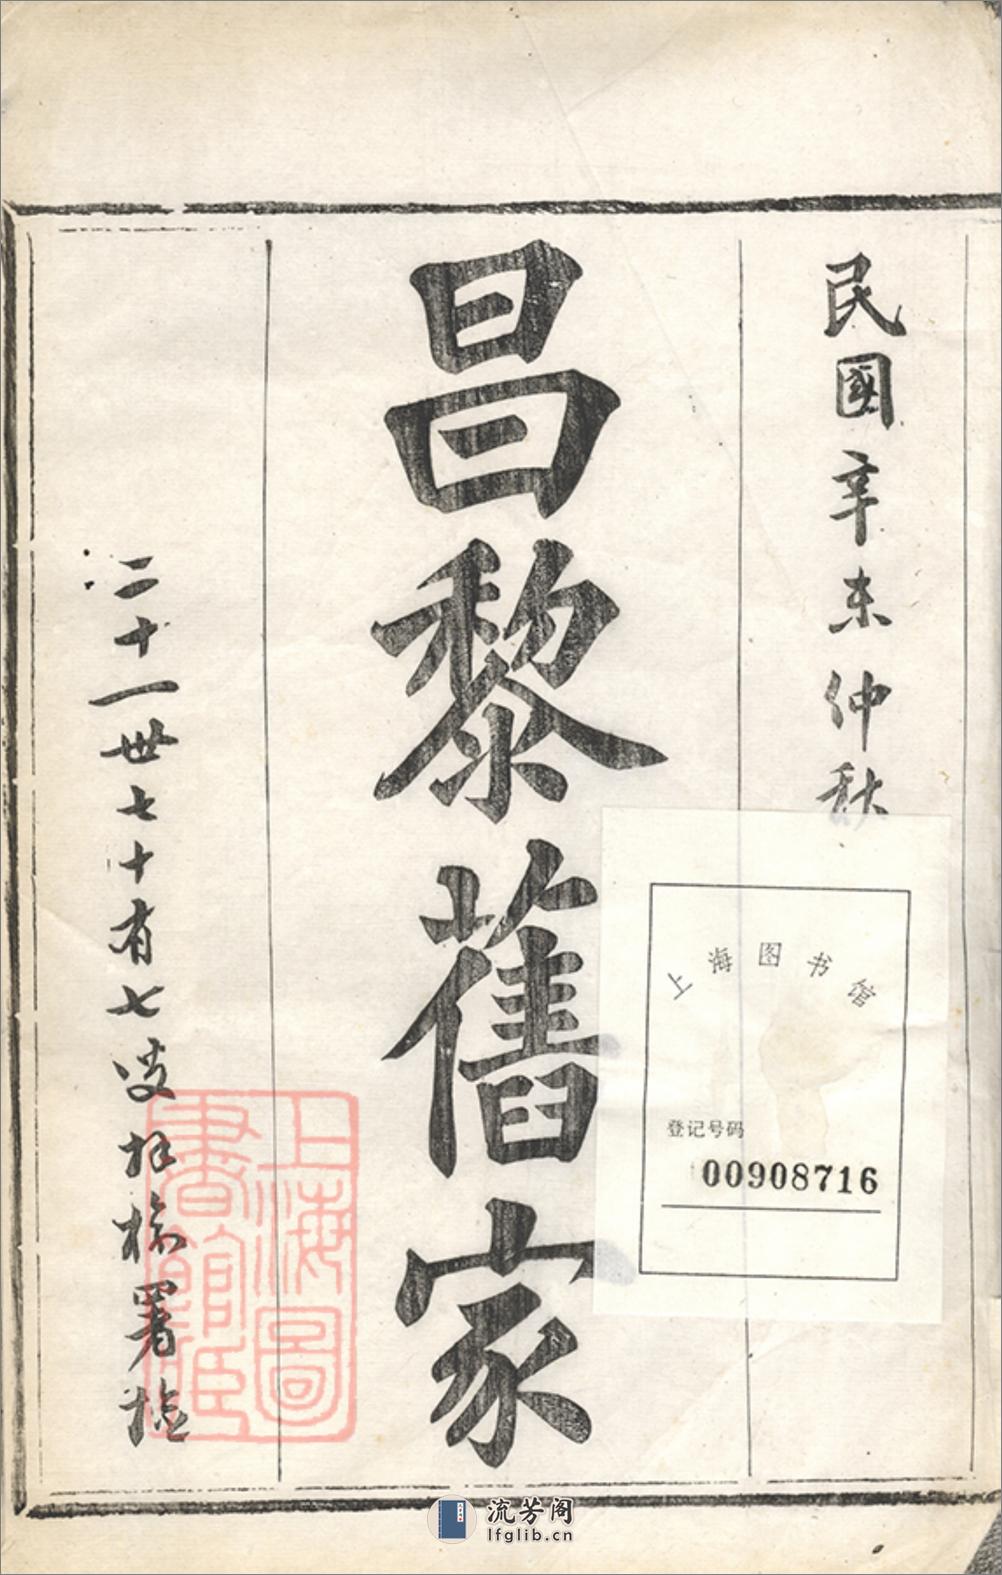 民國辛未仲秋
昌黎舊家
二十一世七十有七叟
署檢
上海图书馆
登记号码
00908716
上海圖
書館臧
流芳阁
lfglib.cn